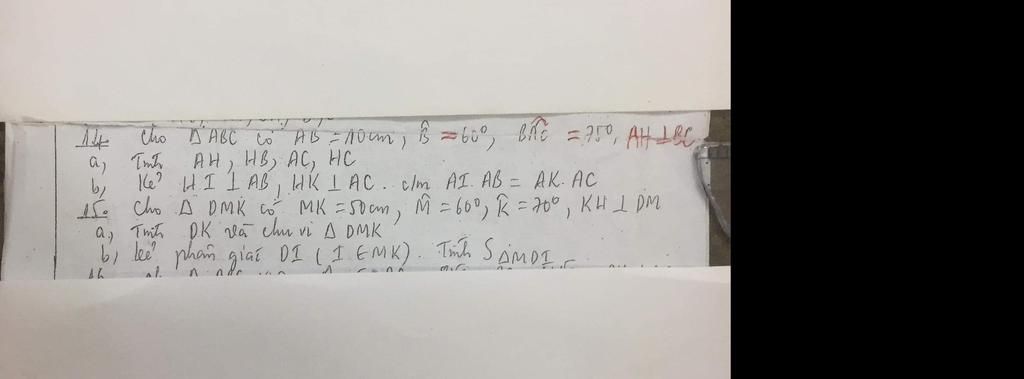 14 Cho ΔABC có AB = 10cm, B̂ = 60⁰, BÂC = 75⁰, AH⊥BC
a, Tính AH, HB, AC, HC
b, Kẻ HI ⊥ AB, HK ⊥ AC. c/m AI. AB = AK. AC
15. Cho Δ DMK có MK = 50cm, M̂ = 60⁰, K̂ = 70⁰, KH ⊥ DM
a, Tính DK và chu vi Δ DMK
b, kẻ phân giác DI ( I ∈ MK). Tính S ΔMDI